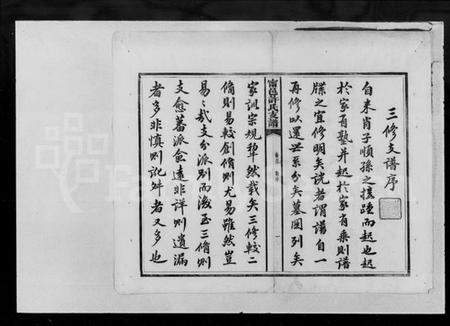 三修支譜序
自来肖子順孫之接踵而起也起
於家有塾并起於家有乘則譜
牒之宜修明矣說者謂譜自一
再修以還世系分矣墓圖列矣
甯邑許氏支譜
家訓宗規犂然載矣三修較二
脩則易較創脩則尤易雖然豈
易易哉支分派別而瀲至三脩則
支愈蕃派愈遠非詳則遺漏
者多非慎則訛舛者又多也